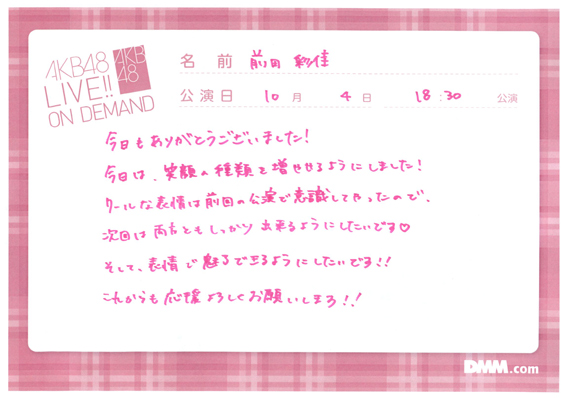 AKB48
LIVE!!
ON DEMAND
AKB
48
名 前 前田 彩佳
公演日 10 月 4 日 18:30 公演
今日もありがとうございました!
今日は、笑顔の種類を増やせるようにしました!
クールな表情は前回の公演で意識してやったので、
次回は両方ともしっかり出来るようにしたいです♡
そして、表情で魅了できるようにしたいです!!
これからも応援よろしくお願いします!!
DMM.com